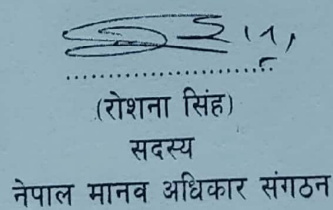 (रोशना सिंह)
सदस्य
नेपाल मानव अधिकार संगठन